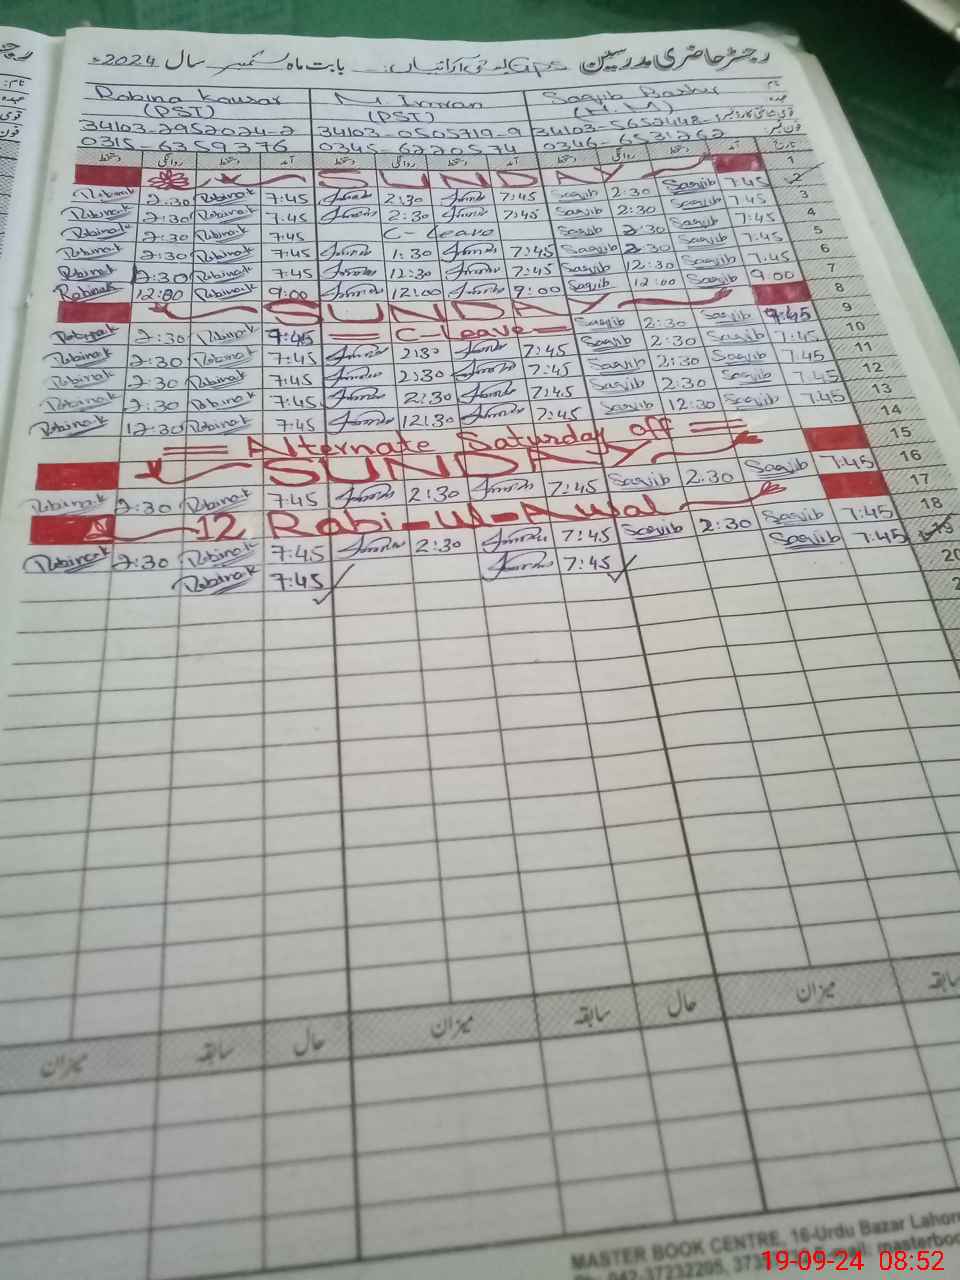 رجسٹر حاضری مدرسین GPS بابت ماہ ستمبر سال 2024ء
نام: Saqib Bashir M. Imran Robina Kousar
عہدہ (PST) (PST)
34103-5652448- 34103-0505719-9 34103-2952024-2
فون نمبر: 0346-6531262 0345-6220574 0315-6359376
تاریخ آمد دستخط روانگی دستخط آمد دستخط روانگی دستخط آمد دستخط روانگی دستخط
1 SUNDAY
2 7:45 Saqib 2:30 Saqib 7:45 Imran 2:30 Imran 7:45 Robinak 2:30 Robinak
3 7:45 Saqib 2:30 Saqib 7:45 Imran 2:30 Imran 7:45 Robinak 2:30 Robinak
4 7:45 Saqib 2:30 Saqib C-Leave 7:45 Robinak 2:30 Robinak
5 7:45 Saqib 2:30 Saqib 7:45 Imran 1:30 Imran 7:45 Robinak 2:30 Robinak
6 7:45 Saqib 12:30 Saqib 7:45 Imran 12:30 Imran 7:45 Robinak 12:30 Robinak
7 9:00 Saqib 12:00 Saqib 9:00 Imran 12:00 Imran 9:00 Robinak 12:00 Robinak
8 SUNDAY
9 7:45 Saqib 2:30 Saqib C-Leave 7:45 Robinak 2:30 Robinak
10 7:45 Saqib 2:30 Saqib 7:45 Imran 2:30 Imran 7:45 Robinak 2:30 Robinak
11 7:45 Saqib 2:30 Saqib 7:45 Imran 2:30 Imran 7:45 Robinak 2:30 Robinak
12 7:45 Saqib 2:30 Saqib 7:45 Imran 2:30 Imran 7:45 Robinak 2:30 Robinak
13 7:45 Saqib 12:30 Saqib 7:45 Imran 12:30 Imran 7:45 Robinak 12:30 Robinak
14 Alternate Saturday off
15 SUNDAY
16 7:45 Saqib 2:30 Saqib 7:45 Imran 2:30 Imran 7:45 Robinak 2:30 Robinak
17 12 Rabi-ul-Awal
18 7:45 Saqib 2:30 Saqib 7:45 Imran 2:30 Imran 7:45 Robinak 2:30 Robinak
19 7:45 Saqib 7:45 Imran 7:45 Robinak
20
سابقہ میزان حال سابقہ میزان حال سابقہ میزان
MASTER BOOK CENTRE, 16-Urdu Bazar Lahore
Ph: 042-37232205, masterbo
19-09-24 08:52